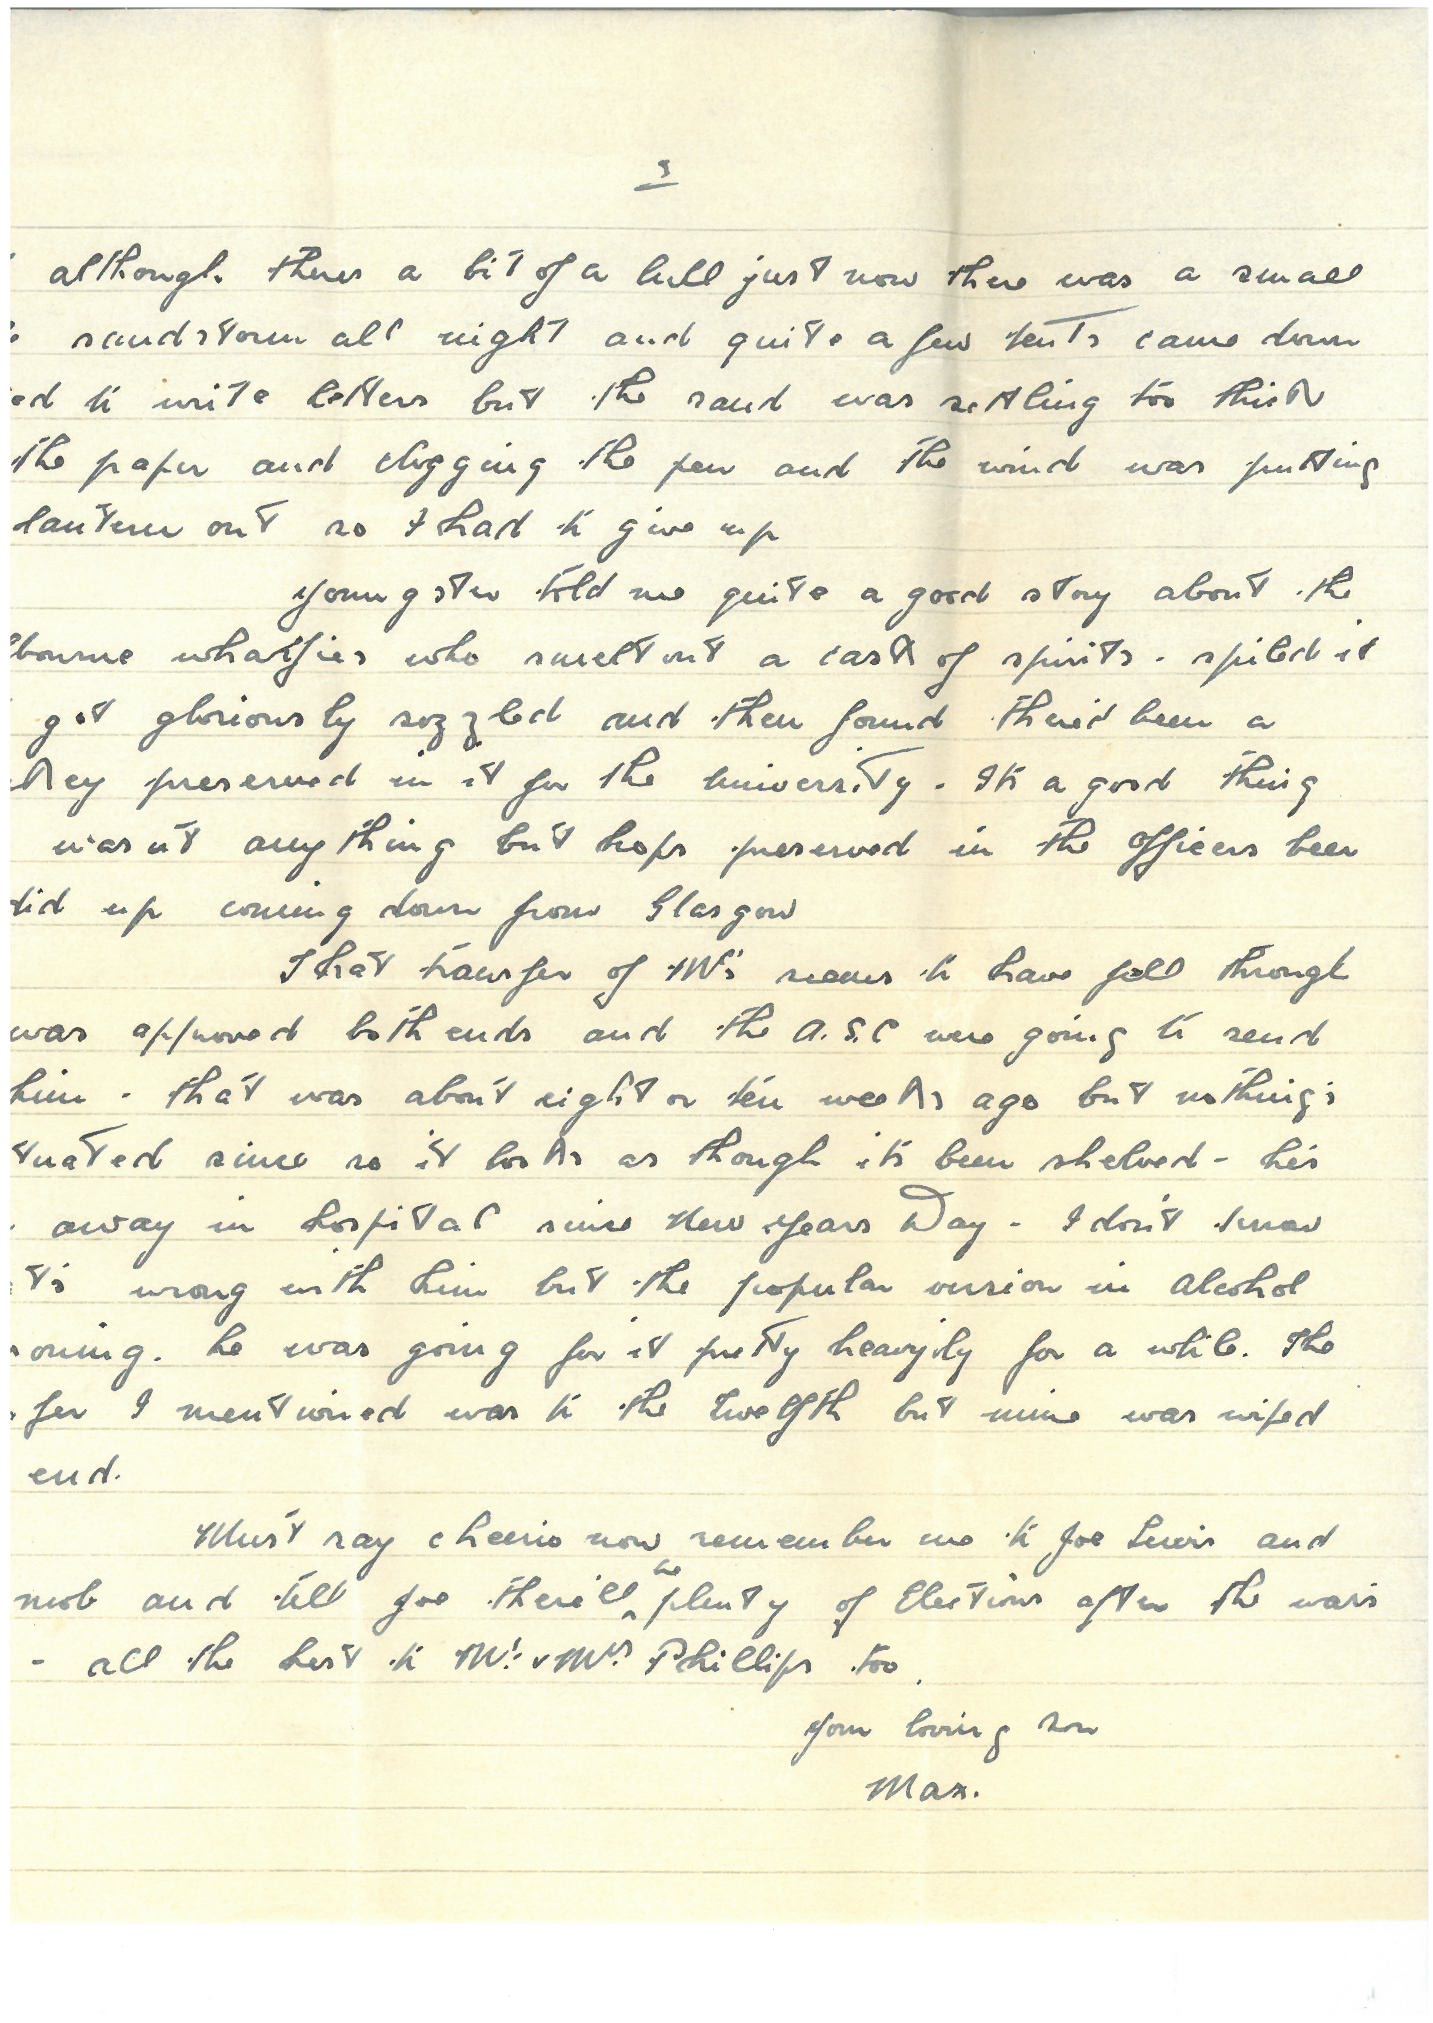 3
although theres a bit of a lull just now there was a small
sandstorm all night and quite a few tents came down
ed to write letters but the sand was settling too thick
the paper and clogging the pen and the wind was putting
lantern out so I had to give up
youngster told me quite a good story about the
lbourne whatfies who smelt out a cask of spirits - spiled it
got gloriously sozzled and then found there'd been a
key preserved in it for the University - Its a good thing
wasn't anything but hops preserved in the officers beer
did up coming down from Glasgow
That transfer of Mc's seems to have fell through
was approved both ends and the A.S.C were going to send
him - that was about eight or ten weeks ago but nothing's
tuated since so it looks as though its been shelved - he's
away in hospital since New Years Day - I don't know
t's wrong with him but the popular version in alcohol
soning. he was going for it pretty heavily for a while. The
fer I mentioned was to the Twelfth but mine was wiped
end.
Must say cheerio now remember me to Joe Lewis and
mob and tell Joe there'll be plenty of Elections after the wars
- all the best to Mr. & Mrs. Phillips too.
Your loving son
Max.